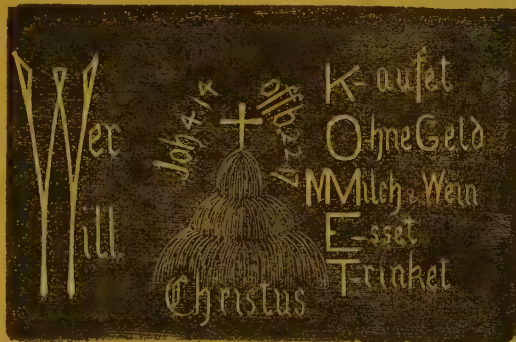 Wer
Will
Joh 4 14
Offb 22 17
Christus
K-aufet
OhneGeld
MMilch & Wein
E-sset
T-rinket